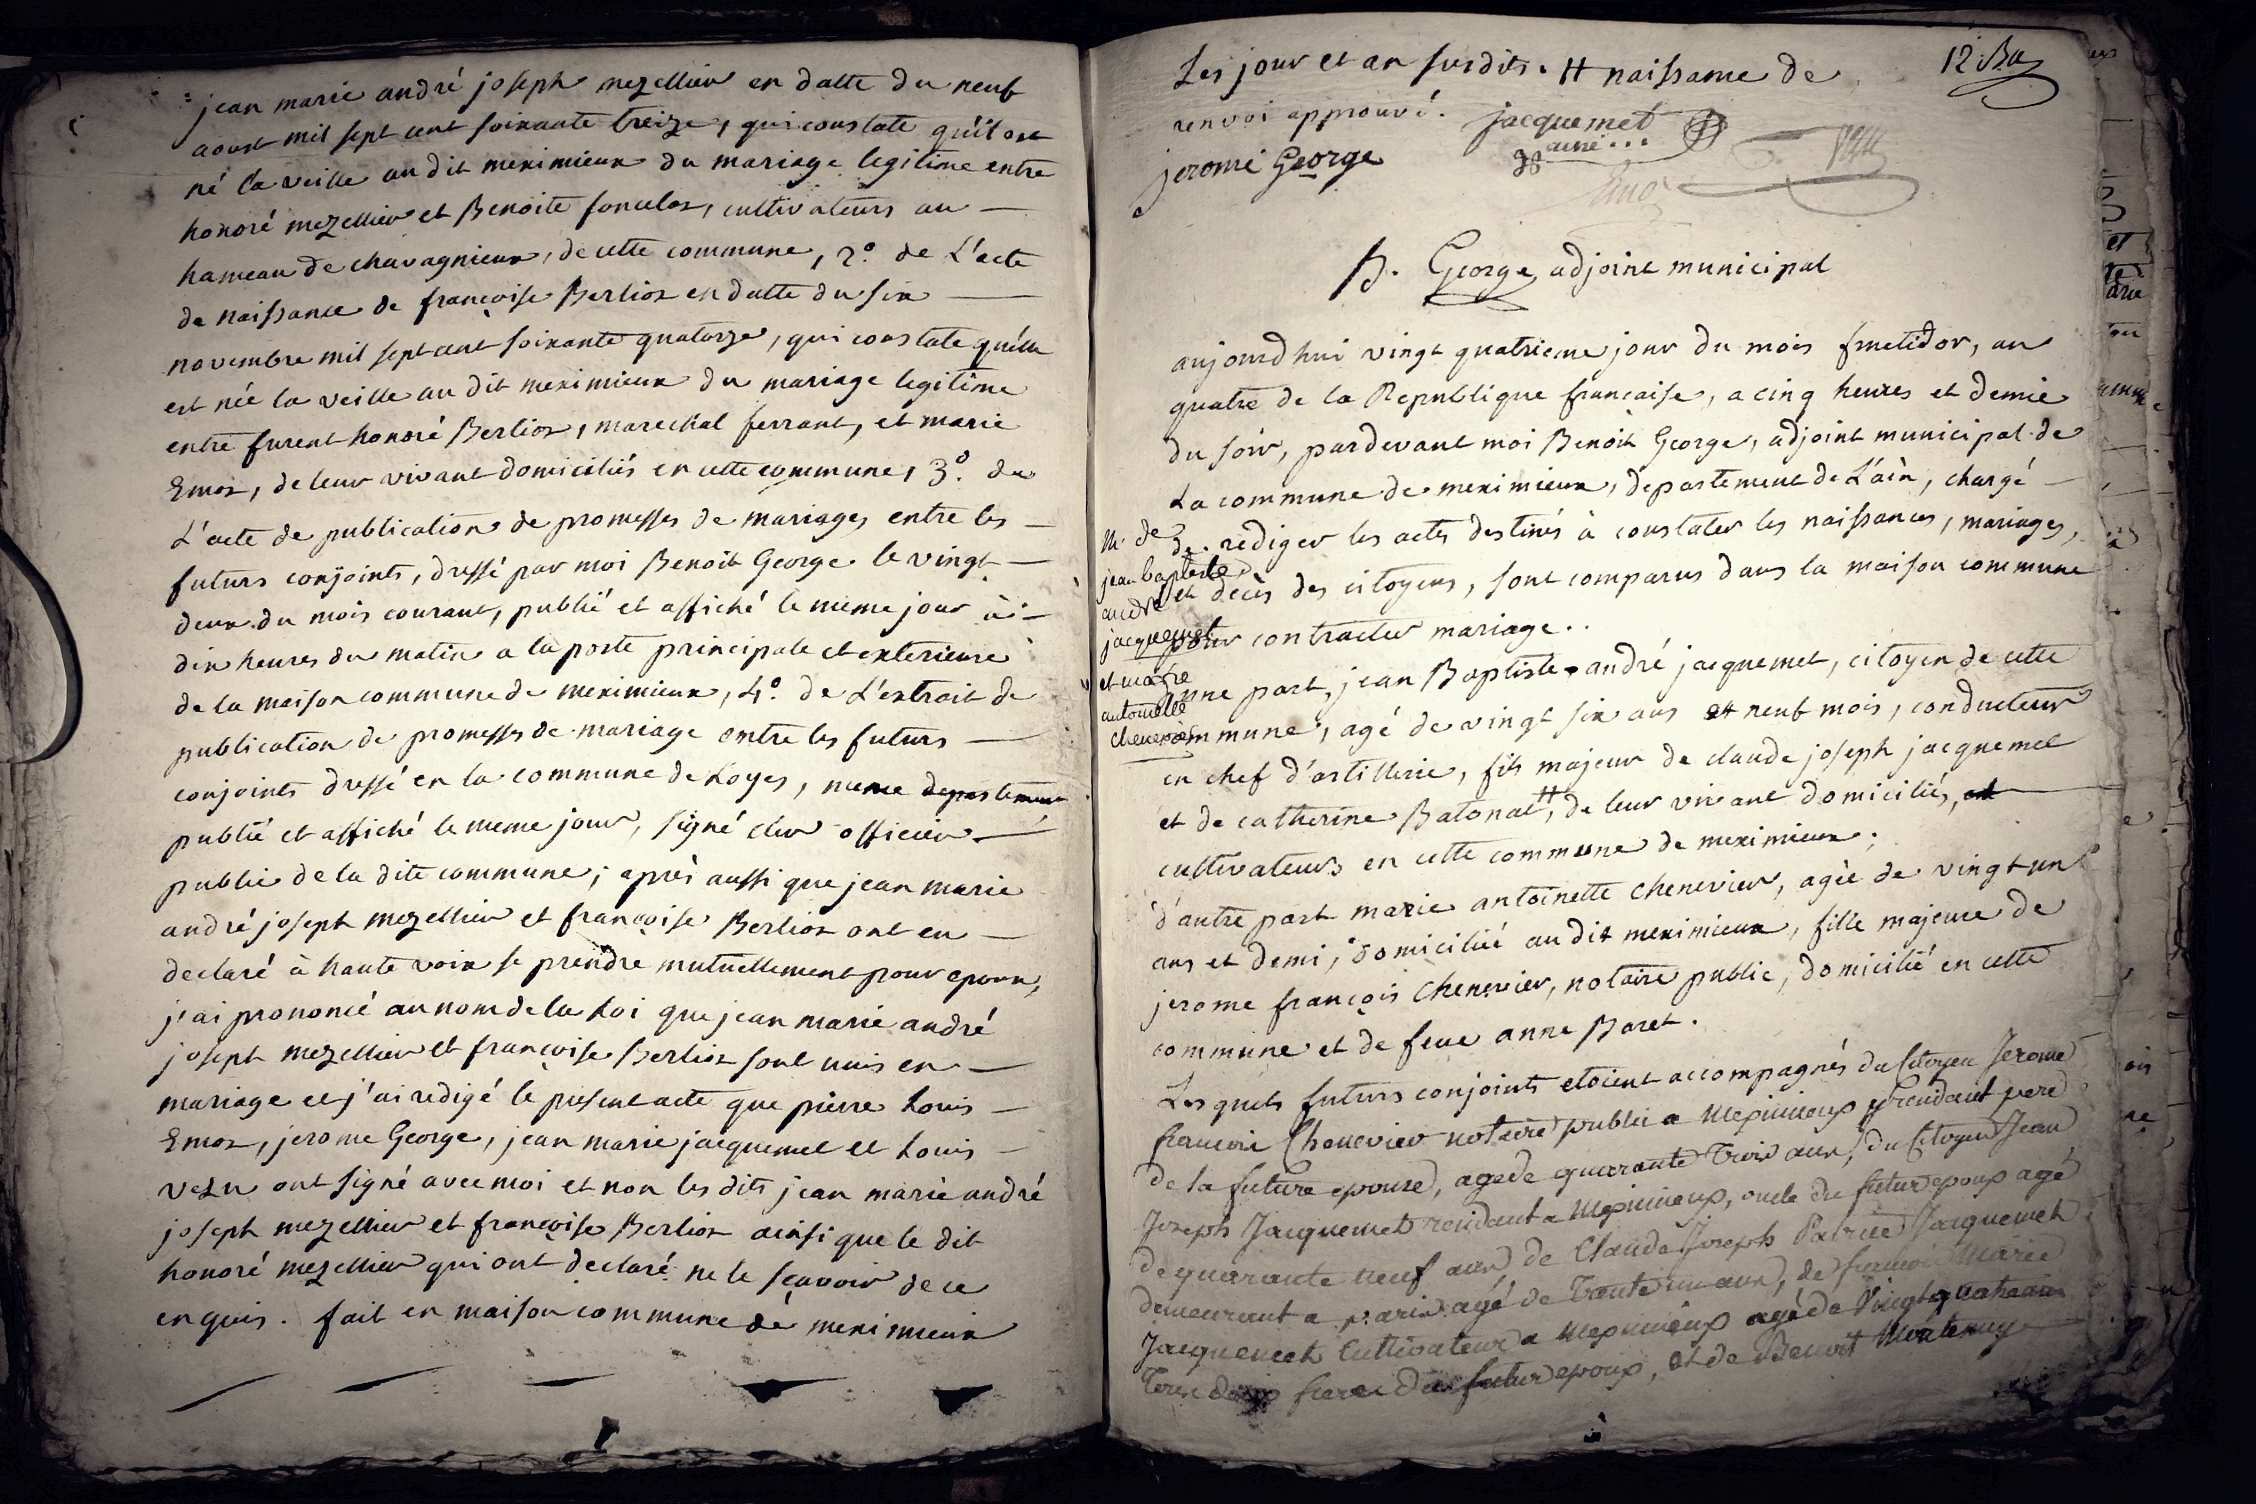 jean marie andré joseph mezellier en datte du neuf
aoust mil sept cent soixante treize, qui constate qu'il est
né la veille au dit meximieux du mariage legitime entre
honoré mezellier et Benoite fonculos, cultivateurs au
hameau de chavagnieux, de cette commune, 2° de L'acte
de naissance de françoise Berlioz en datte du six
novembre mil sept cent soixante quatorze, qui constate qu'elle
est née la veille au dit meximieux du mariage legitime
entre furent honoré Berlioz, marechal ferrant, et marie
Emoz, de leur vivant domiciliés en cette commune, 3° de
L'acte de publication de promesses de mariages entre les
futurs conjoints, dressé par moi Benoit George le vingt
deux du mois courant, publié et affiché le meme jour à
dix heures du matin a la porte principale et exterieure
de la maison commune de meximieux, 4° de L'extrait de
publication de promesses de mariage entre les futurs
conjoints dressé en la commune de Loyes, meme departement
publié et affiché le meme jour, signé officier
public de la dite commune; après aussi que jean marie
andré joseph mezellier et françoise Berlioz ont eu
declaré à haute voix se prendre mutuellement pour epoux,
j'ai prononcé au nom de la Loi que jean marie andré
joseph mezellier et françoise Berlioz sont unis en
mariage et j'ai redigé le present acte que pierre Louis
Emoz, jerome George, jean marie jacquemet et Louis
vezu ont signé avec moi et non les dits jean marie andré
joseph mezellier et françoise Berlioz ainsi que le dit
honoré mezellier qui ont declaré ne le sçavoir de ce
enquis. fait en maison commune de meximieux
12
Les jour et an susdits. # naissance de
renvoi approuvé. jacquemet
ainé...
jerome George
B. George, adjoint municipal
aujourd hui vingt quatrieme jour du mois fructidor, an
quatre de la Republique française, a cinq heures et demie
du soir, pardevant moi Benoit George, adjoint municipal de
La commune de meximieux, departement de L'ain, chargé
de rediger les actes destinés à constater les naissances, mariages,
et decès des citoyens, sont comparus dans la maison commune
pour contracter mariage..
M. de
jean baptiste
andré
jacquemet
et marie
antoinette
chenevier
d'une part, jean Baptiste andré jacquemet, citoyen de cette
commune, agé de vingt six ans et neuf mois, conducteur
en chef d'artillerie, fils majeur de claude joseph jacquemet
et de catherine Batonat #, de leur vivant domiciliés,
cultivateurs en cette commune de meximieux;
d'autre part marie antoinette chenevier, agèe de vingt un
ans et demi, domiciliée au dit meximieux, fille majeure de
jerome françois chenevier, notaire public, domicilié en cette
commune et de feue anne Baret.
Lesquels futurs conjoints etoient accompagnés du Citoyen Jerome
francois Chenevier notaire public a Meximieux y residant pere
de la future epouse, agé de quarante trois ans, du Citoyen Jean
Joseph Jacquemet residant a Meximieux, oncle du futur epoux agé
de quarante neuf ans de Claude Joseph Patrice Jacquemet
demeurant a paris agé de trente un ans, de francois Marie
Jacquemet Cultivateur a Meximieux agé de Vingt quatre ans
freres du futur epoux, et de Benoit Montenuy